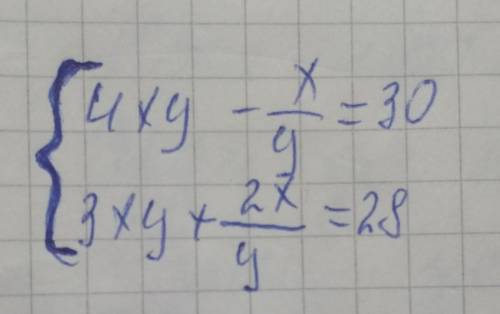 4xy - x/y = 30
3xy + 2x/y = 28